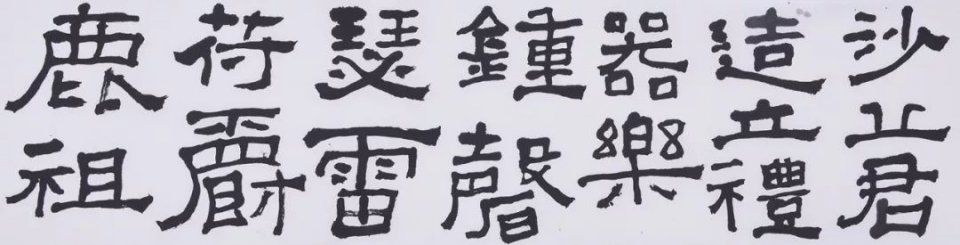 沙丘君
造立禮
器樂
鍾磬
瑟雷
苻爵
鹿祖